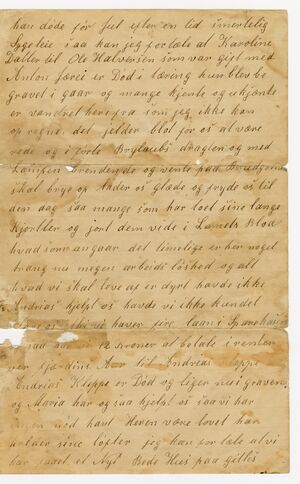 han døde før Jul efter en tid smertelig
Sygeleie saa kan jeg fortæle at Karoline
Datter til Ole Halvorsen som var gift med
Anton er Død i hun blev be
gravet i gaar og mange kjente og ukjente
er vandret herifra som jeg ikke kan
op regne det jelder blot for os at være
rede og i vorte Brylaubs dragten og med
Lampen brendende og vente paa Brudgommen
skal bryte op Lader os Glæde og fryde os til
den dag saa mange som har toet sine lange
Kjortler og jort dem vide i Lamets Blod
hvad som angaar det timelige er her noget
trang nu megen arbeids løshed og alt
hvad vi skal leve af er dyrt havde ikke
Andrias hjelpt os havde vi ikke kundet
vi haver fire laan i Sparekassen
kroner at betale i renten
Aar til Andreas oppe
Andrias Kleppe er Død og liger nu i graven
og Maria har og saa hjelpt os saa vi har
ingen nød havt Herren være lovet han
sine løfter jeg kan for tæle at vi
har faaet et Nyt Bede Hus paa